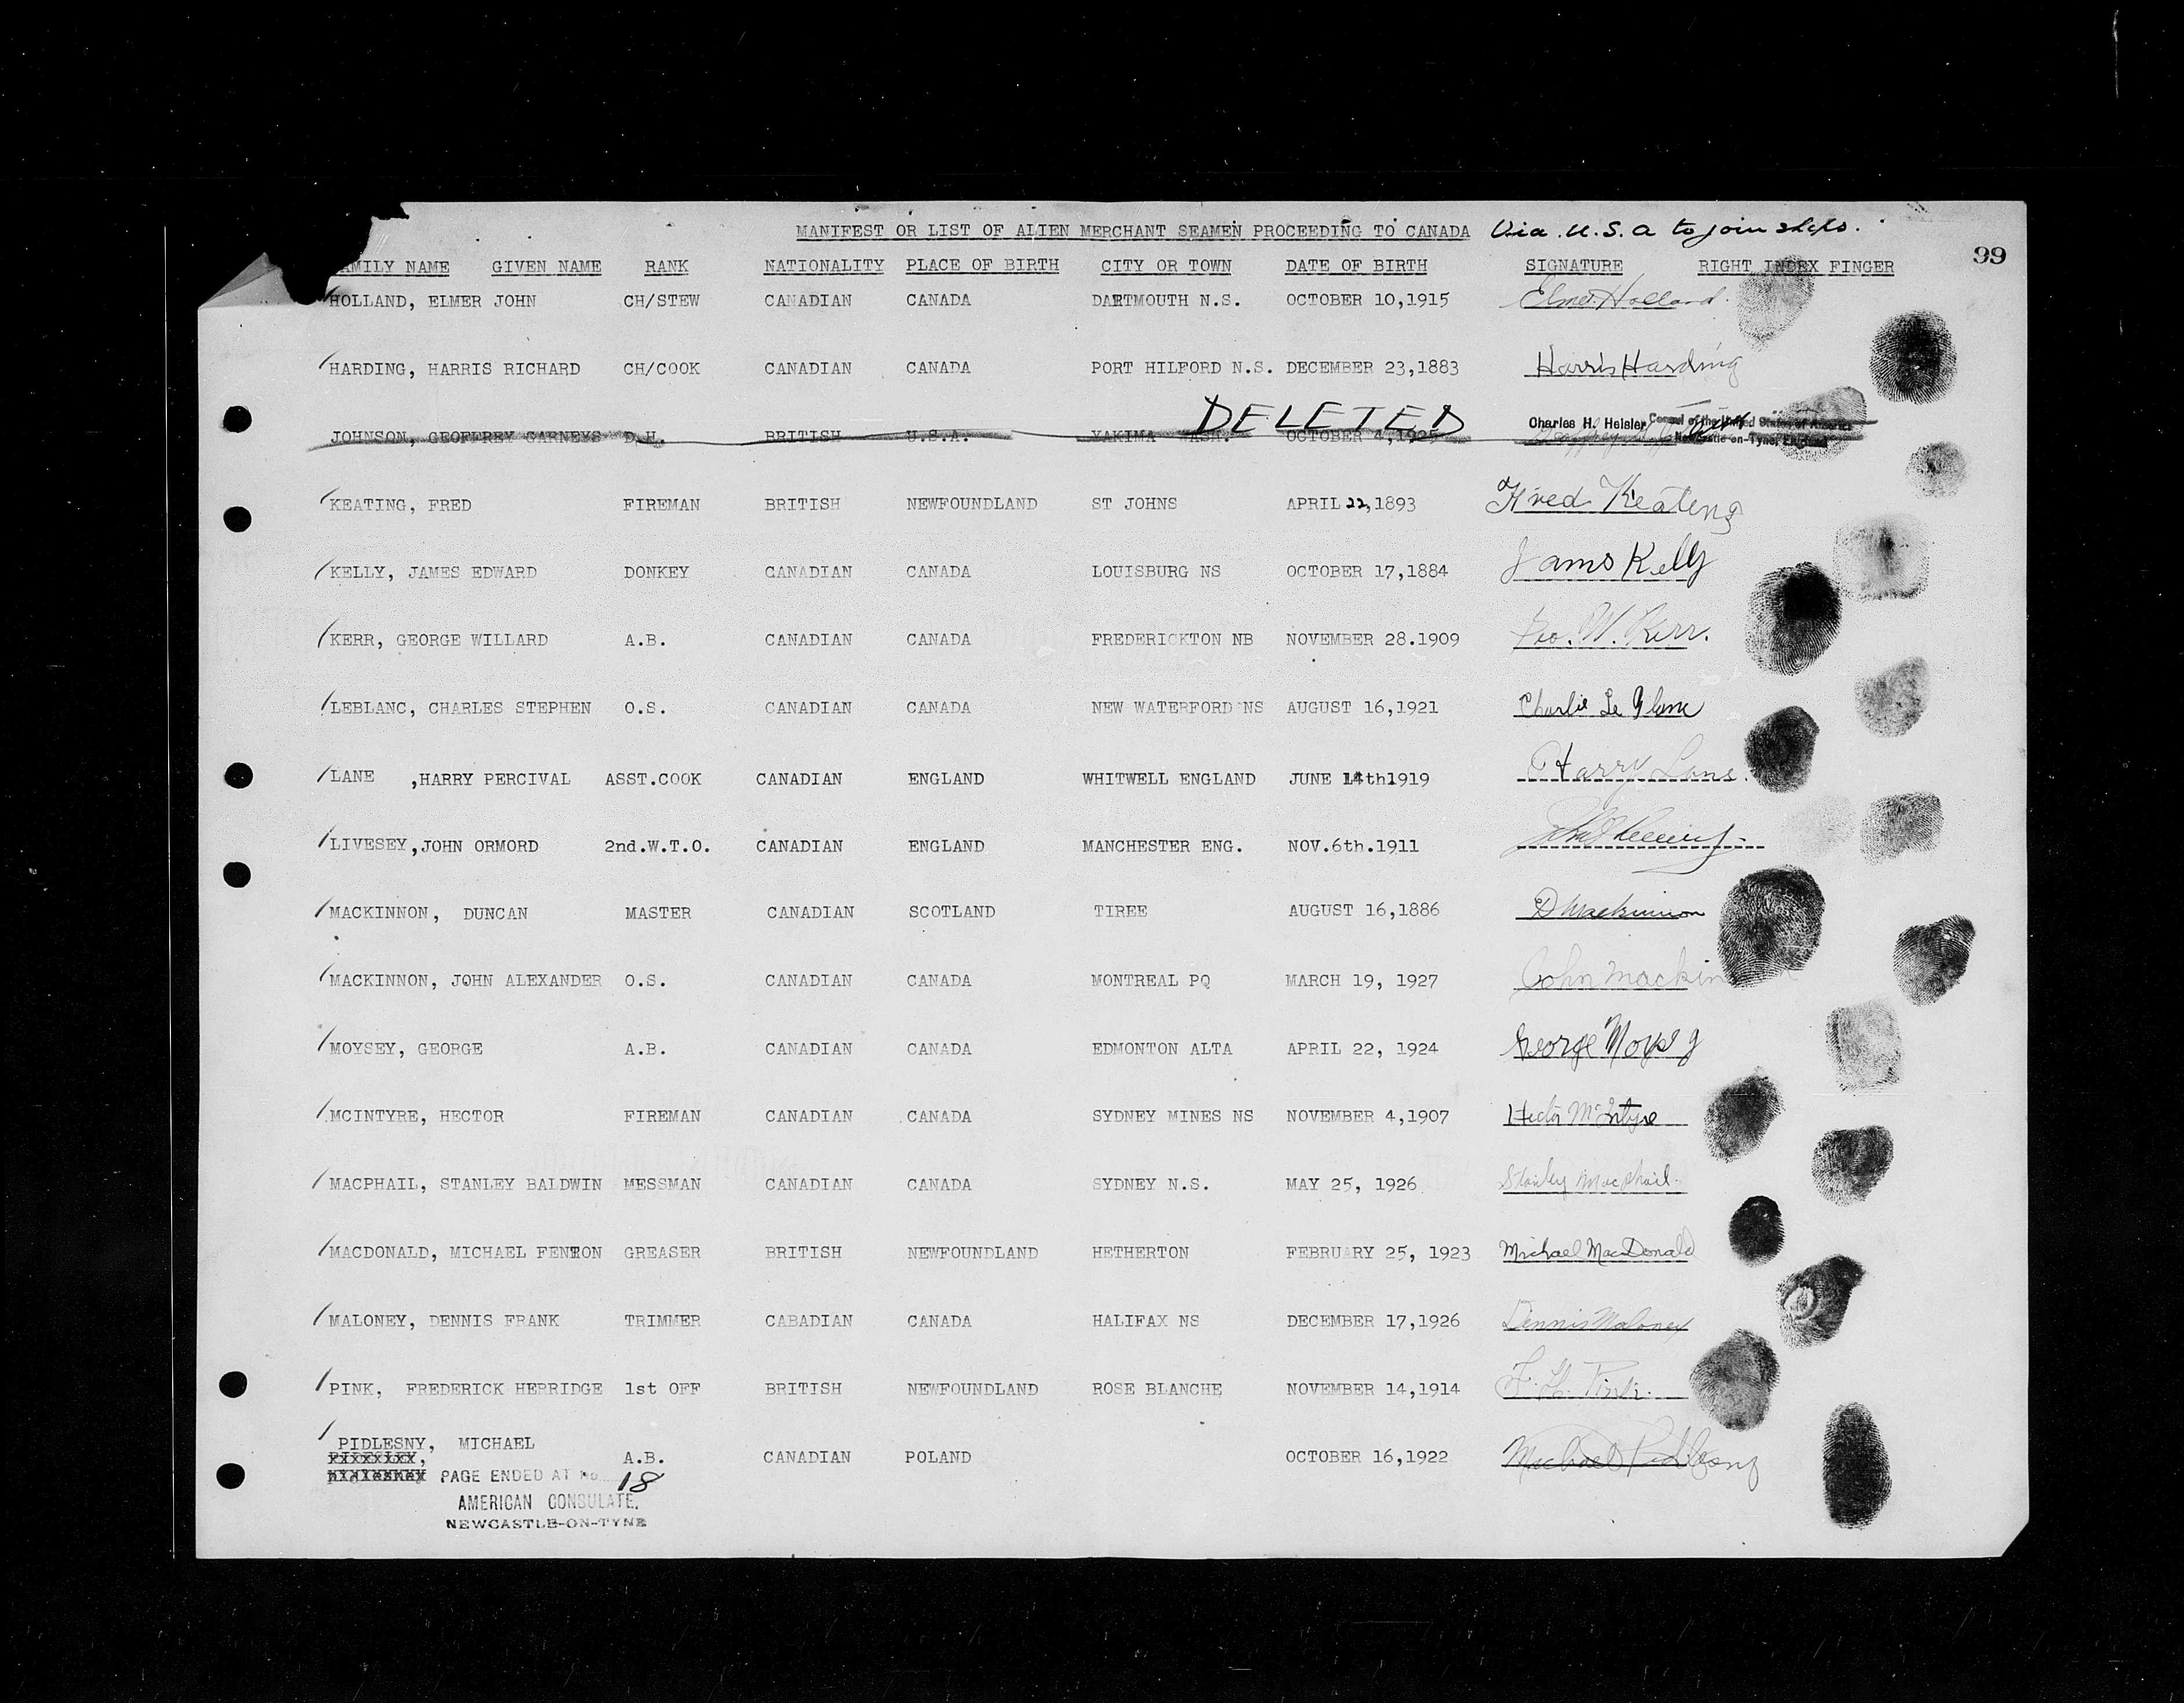 MANIFEST OR LIST OF ALIEN MERCHANT SEAMEN PROCEEDING TO CANADA Via U.S.A to join ships.
99
AMILY NAME GIVEN NAME RANK NATIONALITY PLACE OF BIRTH CITY OR TOWN DATE OF BIRTH SIGNATURE RIGHT INDEX FINGER
HOLLAND, ELMER JOHN CH/STEW CANADIAN CANADA DARTMOUTH N.S. OCTOBER 10,1915 Elmer Holland.
HARDING, HARRIS RICHARD CH/COOK CANADIAN CANADA PORT HILFORD N.S. DECEMBER 23,1883 Harris Harding
DELETED
Charles H. Heisler Consul of the United States of America
JOHNSON, GEOFFREY CARNEYS D.H. BRITISH U.S.A. YAKIMA WASH. OCTOBER 4,1925 Newcastle-on-Tyne, England
KEATING, FRED FIREMAN BRITISH NEWFOUNDLAND ST JOHNS APRIL 22,1893 Fred Keating
KELLY, JAMES EDWARD DONKEY CANADIAN CANADA LOUISBURG NS OCTOBER 17,1884 Jams Kelly
KERR, GEORGE WILLARD A.B. CANADIAN CANADA FREDERICKTON NB NOVEMBER 28.1909 Geo. W. Kerr.
LEBLANC, CHARLES STEPHEN O.S. CANADIAN CANADA NEW WATERFORD NS AUGUST 16,1921 Charlie Le Blanc
LANE ,HARRY PERCIVAL ASST.COOK CANADIAN ENGLAND WHITWELL ENGLAND JUNE 14th1919 Harry Lane.
LIVESEY,JOHN ORMORD 2nd.W.T.O. CANADIAN ENGLAND MANCHESTER ENG. NOV.6th.1911
MACKINNON, DUNCAN MASTER CANADIAN SCOTLAND TIREE AUGUST 16,1886 D Mackinnon
MACKINNON, JOHN ALEXANDER O.S. CANADIAN CANADA MONTREAL PQ MARCH 19, 1927 John Mackin
MOYSEY, GEORGE A.B. CANADIAN CANADA EDMONTON ALTA APRIL 22, 1924 George Moysey
MCINTYRE, HECTOR FIREMAN CANADIAN CANADA SYDNEY MINES NS NOVEMBER 4,1907 Hector McIntyre
MACPHAIL, STANLEY BALDWIN MESSMAN CANADIAN CANADA SYDNEY N.S. MAY 25, 1926 Stanley MacPhail.
MACDONALD, MICHAEL FENTON GREASER BRITISH NEWFOUNDLAND HETHERTON FEBRUARY 25, 1923 Michael MacDonald
MALONEY, DENNIS FRANK TRIMMER CABADIAN CANADA HALIFAX NS DECEMBER 17,1926 Dennis Maloney
PINK, FREDERICK HERRIDGE 1st OFF BRITISH NEWFOUNDLAND ROSE BLANCHE NOVEMBER 14,1914 F. H. Pink.
PIDLESNY, MICHAEL
A.B. CANADIAN POLAND OCTOBER 16,1922 Michael Pidlesny
PAGE ENDED AT No 18
AMERICAN CONSULATE.
NEWCASTLE-ON-TYNE